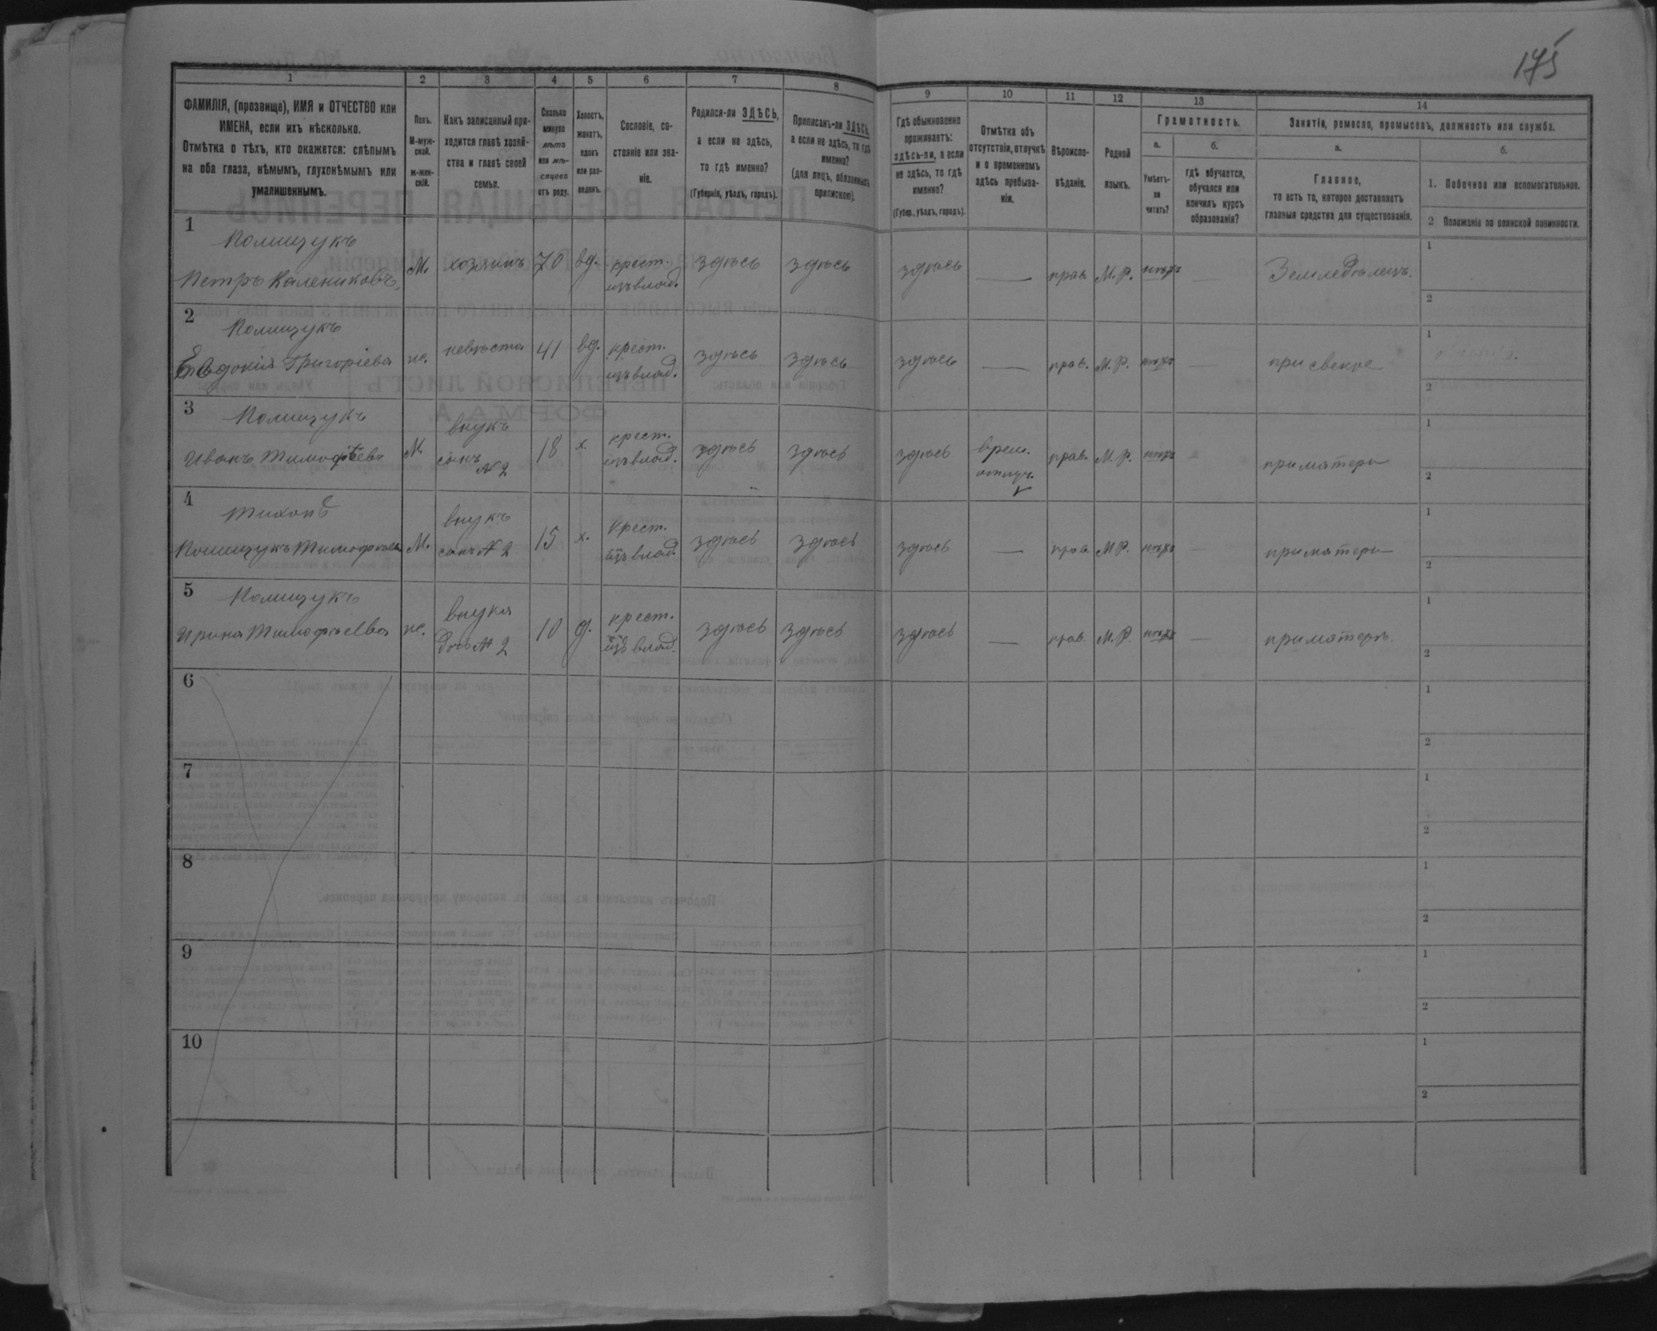 175
1 2 3 4 5 6 7 8 9 10 11 12 13 14
ФАМИЛІЯ, (прозвище), ИМЯ и ОТЧЕСТВО или
ИМЕНА, если ихъ нѣсколько.
Отмѣтка о тѣхъ, кто окажется: слѣпымъ
на оба глаза, нѣмымъ, глухонѣмымъ или
умалишеннымъ.
Полъ.
М-муж-
ской.
ж-жен-
скій.
Какъ записанный при-
ходится главѣ хозяй-
ства и главѣ своей
семьи.
Сколько
минуло
лѣтъ
или мѣ-
сяцевъ
отъ роду.
Холостъ,
женатъ,
вдовъ
или раз-
веденъ.
Сословіе, со-
стояніе или зва-
ніе.
Родился-ли ЗДѢСЬ,
а если не здѣсь,
то гдѣ именно?
(Губернія, уѣздъ, городъ).
Приписанъ-ли ЗДѢСЬ,
а если не здѣсь, то гдѣ
именно?
(для лицъ, обязанныхъ
припискою).
Гдѣ обыкновенно
проживаетъ:
здѣсь-ли, а если
не здѣсь, то гдѣ
именно?
(Губер., уѣздъ, городъ).
Отмѣтка объ
отсутствіи, отлучкѣ
и о временномъ
здѣсь пребыва-
ніи.
Вѣроиспо-
вѣданіе.
Родной
языкъ.
Грамотность.
а.
Умѣетъ-
ли
читать?
б.
гдѣ обучается,
обучался или
кончилъ курсъ
образованія?
Занятіе, ремесло, промыселъ, должность или служба.
а.
Главное,
то есть то, которое доставляетъ
главныя средства для существованія.
б.
1. Побочное или вспомогательное.
2 Положеніе по воинской повинности.
1
Полищукъ
Петръ Калениковъ М. хозяинъ 70 вд. крест.
изъ влад. здѣсь здѣсь здѣсь — прав. М.Р. — Земледѣлецъ.
1
2
2
Полищукъ
Евдокія Григоріева ж. невѣстка 41 вд. крест.
изъ влад. здѣсь здѣсь здѣсь — прав. М.Р. — при свекре
1
2
3
Полищукъ
Иванъ Тимофѣевъ М. внукъ
сынъ № 2 18 х. крест.
изъ влад. здѣсь здѣсь здѣсь врем.
отлуч. прав. М.Р. при матери
1
2
4
Тихонъ
Полищукъ Тимофѣевъ М. внукъ
сынъ № 2 15 х. крест.
изъ влад. здѣсь здѣсь здѣсь — прав. М.Р. — при матери
1
2
5
Полищукъ
Ирина Тимофѣева ж. внука
дочь № 2 10 д. крест.
изъ влад. здѣсь здѣсь здѣсь — прав. М.Р. — при матери
1
2
6
1
2
7
1
2
8
1
2
9
1
2
10
1
2